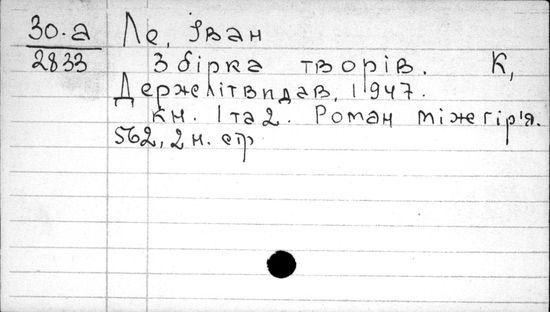 30.а Ле, Іван
2833 Збірка творів. К,
Держлітвидав, 1947.
кн. 1 та 2. Роман міжгір'я.
562, 2 н. стр